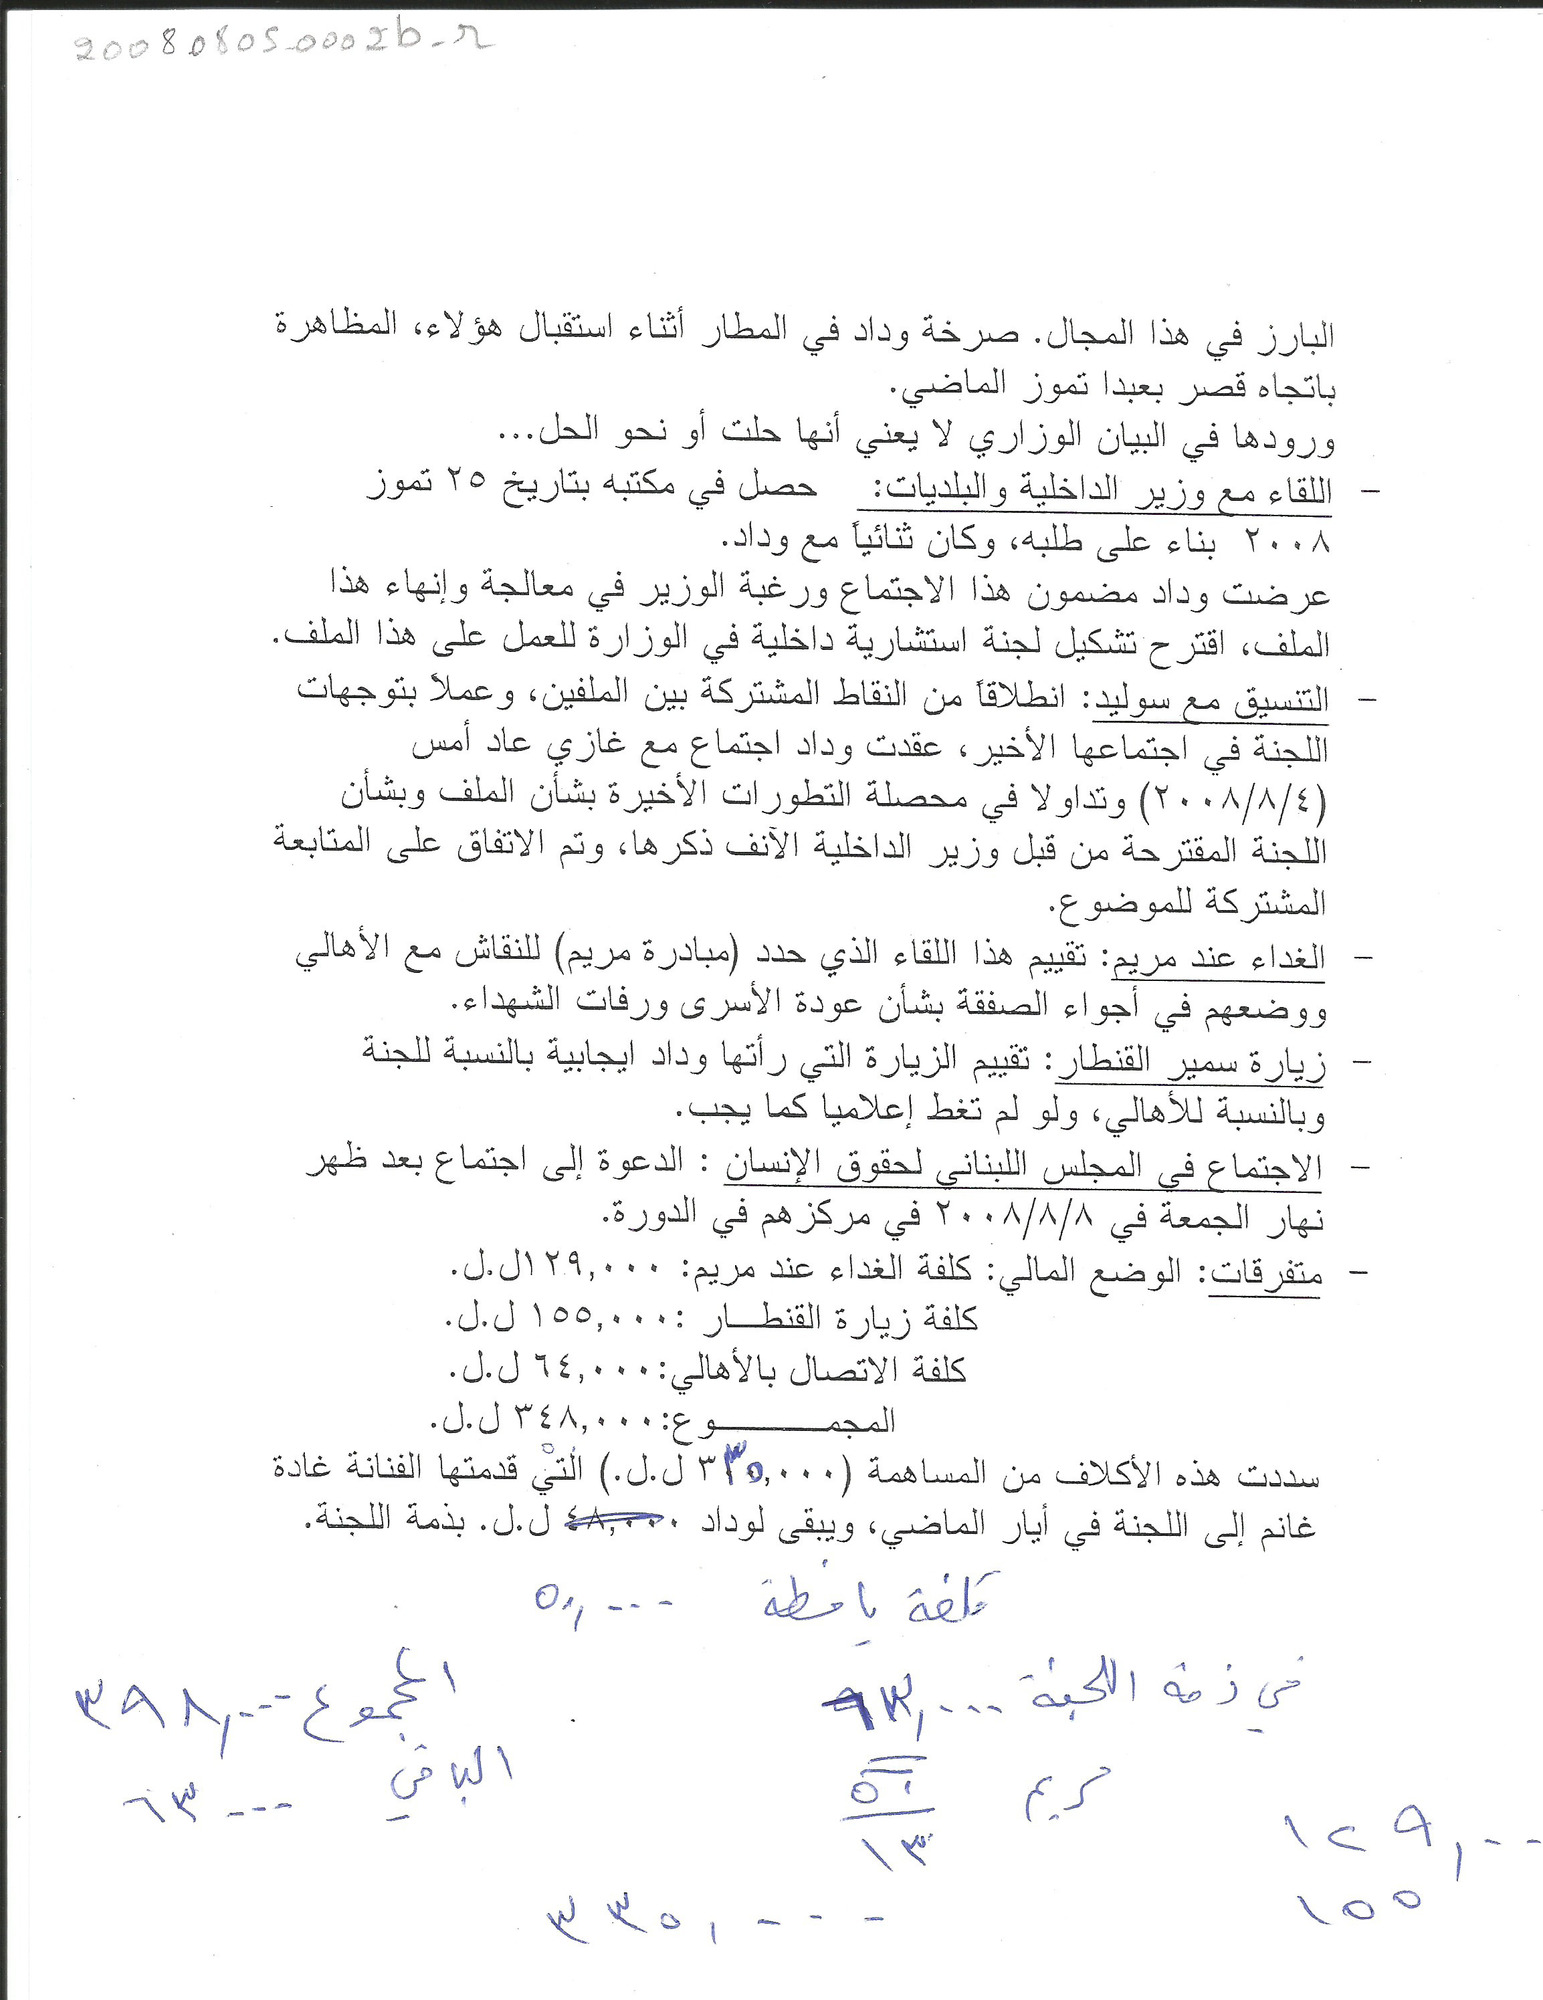 20080805_0002b_r
البارز في هذا المجال. صرخة وداد في المطار أثناء استقبال هؤلاء، المظاهرة
باتجاه قصر بعبدا تموز الماضي.
ورودها في البيان الوزاري لا يعني أنها حلت أو نحو الحل...
- اللقاء مع وزير الداخلية والبلديات: حصل في مكتبه بتاريخ ٢٥ تموز
٢٠٠٨ بناء على طلبه، وكان ثنائياً مع وداد.
عرضت وداد مضمون هذا الاجتماع ورغبة الوزير في معالجة وإنهاء هذا
الملف، اقترح تشكيل لجنة استشارية داخلية في الوزارة للعمل على هذا الملف.
- التنسيق مع سوليد: انطلاقاً من النقاط المشتركة بين الملفين، وعملاً بتوجهات
اللجنة في اجتماعها الأخير، عقدت وداد اجتماع مع غازي عاد أمس
(٢٠٠٨/٨/٤) وتداولا في محصلة التطورات الأخيرة بشأن الملف وبشأن
اللجنة المقترحة من قبل وزير الداخلية الآنف ذكرها، وتم الاتفاق على المتابعة
المشتركة للموضوع.
- الغداء عند مريم: تقييم هذا اللقاء الذي حدد (مبادرة مريم) للنقاش مع الأهالي
ووضعهم في أجواء الصفقة بشأن عودة الأسرى ورفات الشهداء.
- زيارة سمير القنطار: تقييم الزيارة التي رأتها وداد ايجابية بالنسبة للجنة
وبالنسبة للأهالي، ولو لم تغط إعلاميا كما يجب.
- الاجتماع في المجلس اللبناني لحقوق الإنسان : الدعوة إلى اجتماع بعد ظهر
نهار الجمعة في ٢٠٠٨/٨/٨ في مركزهم في الدورة.
- متفرقات: الوضع المالي: كلفة الغداء عند مريم: ١٢٩,٠٠٠ل.ل.
كلفة زيارة القنطـــار :١٥٥,٠٠٠ ل.ل.
كلفة الاتصال بالأهالي:٦٤,٠٠٠ ل.ل.
المجمـــــــوع:٣٤٨,٠٠٠ ل.ل.
سددت هذه الأكلاف من المساهمة (٣٣٥,٠٠٠ ل.ل.) التي قدمتها الفنانة غادة
غانم إلى اللجنة في أيار الماضي، ويبقى لوداد ٤٨,٠٠٠ ل.ل. بذمة اللجنة.
كلفة يافطة ٥٠,٠٠٠
في ذمة اللجنة ٦٣,٠٠٠ المجموع ٣٩٨,٠٠٠
مريم ٥٠ الباقي ٦٣٠٠٠
١٣
١٢٩,٠٠
١٥٥
٣٣٥,٠٠٠